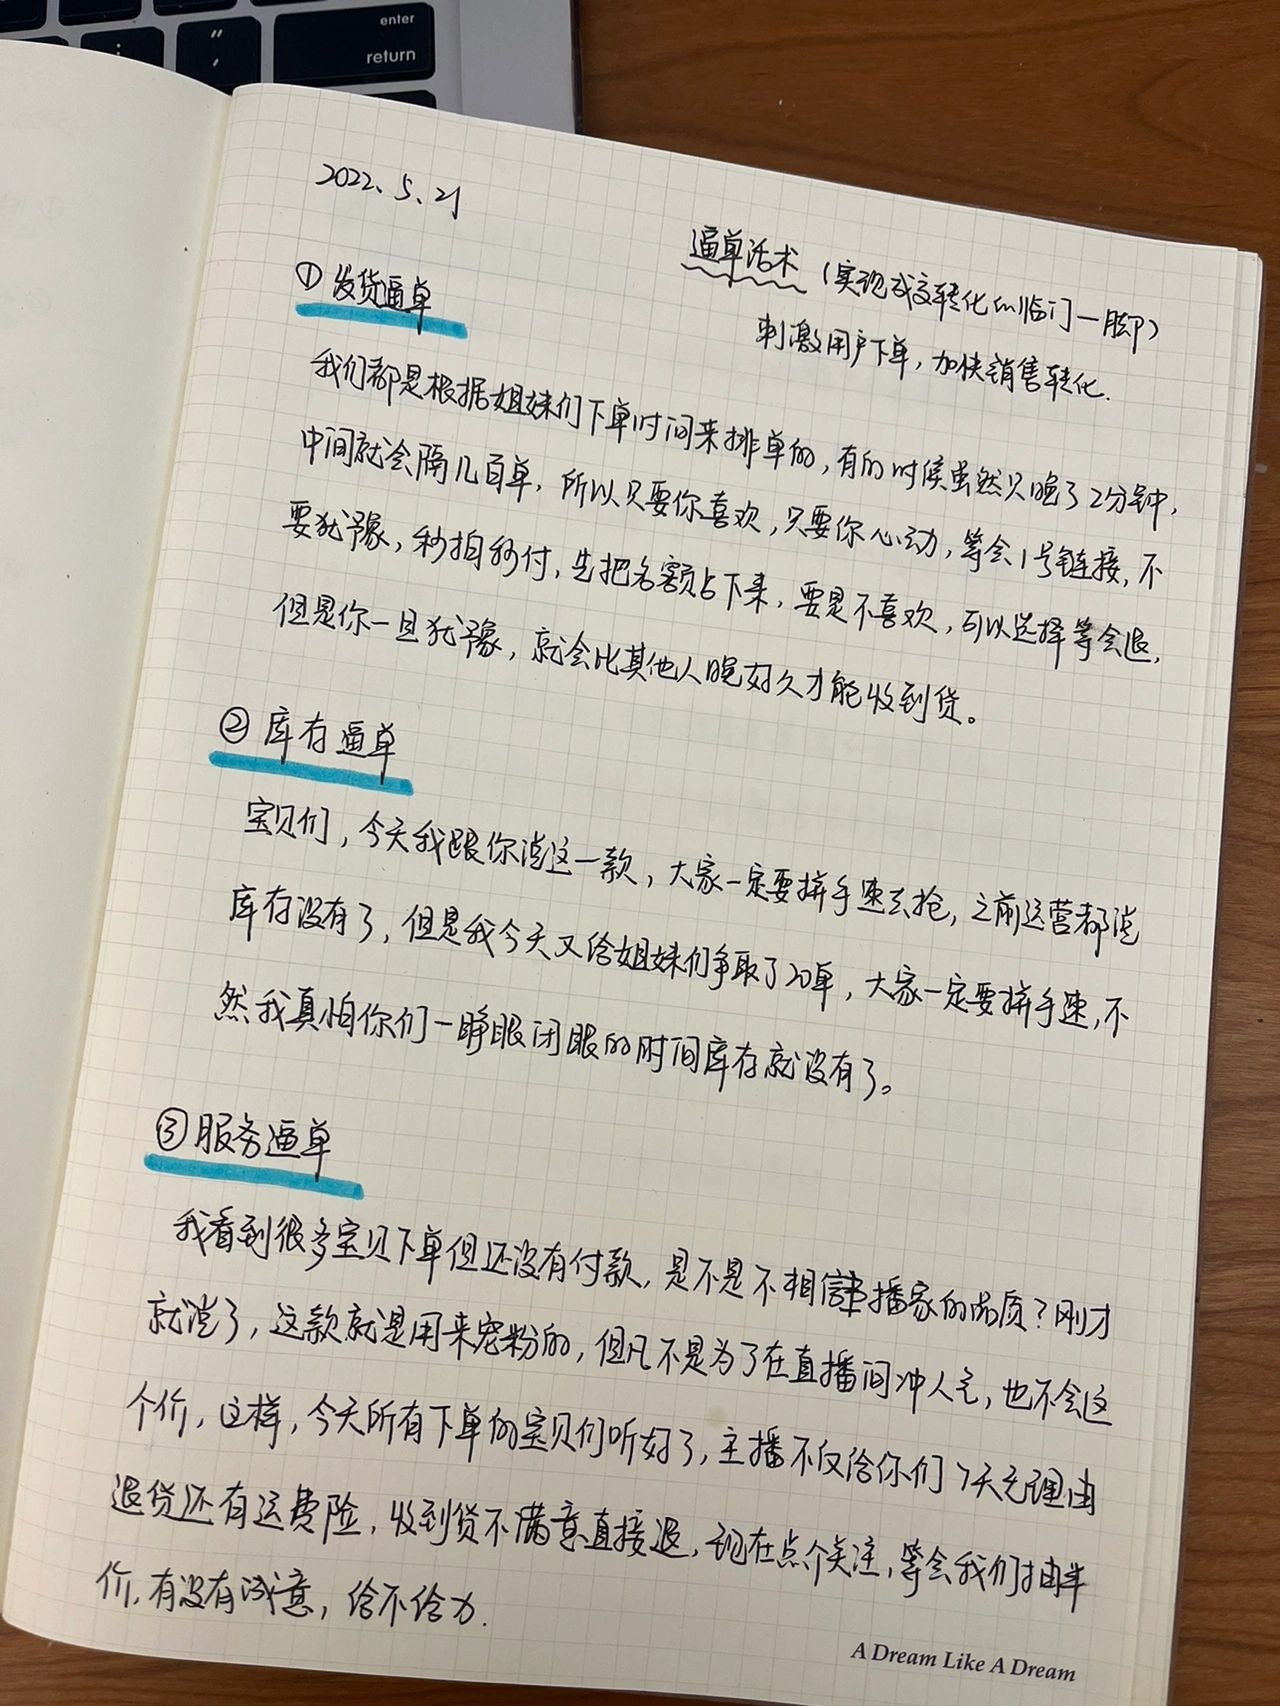 enter
return
2022、5、21
逼单话术（实现成交转化的临门一脚）
刺激用户下单，加快销售转化.
① 发货逼单
我们都是根据姐妹们下单时间来排单的，有的时候虽然只晚了2分钟，
中间就会隔几百单，所以只要你喜欢，只要你心动，等会1号链接，不
要犹豫，秒拍秒付，先把名额占下来，要是不喜欢，可以选择等会退，
但是你一旦犹豫，就会比其他人晚好久才能收到货。
② 库存逼单
宝贝们，今天我跟你说这一款，大家一定要拼手速去抢，之前运营都说
库存没有了，但是我今天又给姐妹们争取了20单，大家一定要拼手速，不
然我真怕你们一睁眼闭眼的时间库存就没有了。
③ 服务逼单
我看到很多宝贝下单但还没有付款，是不是不相信主播家的品质？刚才
就说了，这款就是用来宠粉的，但凡不是为了在直播间冲人气，也不会这
个价，这样，今天所有下单的宝贝们听好了，主播不仅给你们7天无理由
退货还有运费险，收到货不满意直接退，现在点个关注，等会我们抽半
价，有没有诚意，给不给力.
A Dream Like A Dream